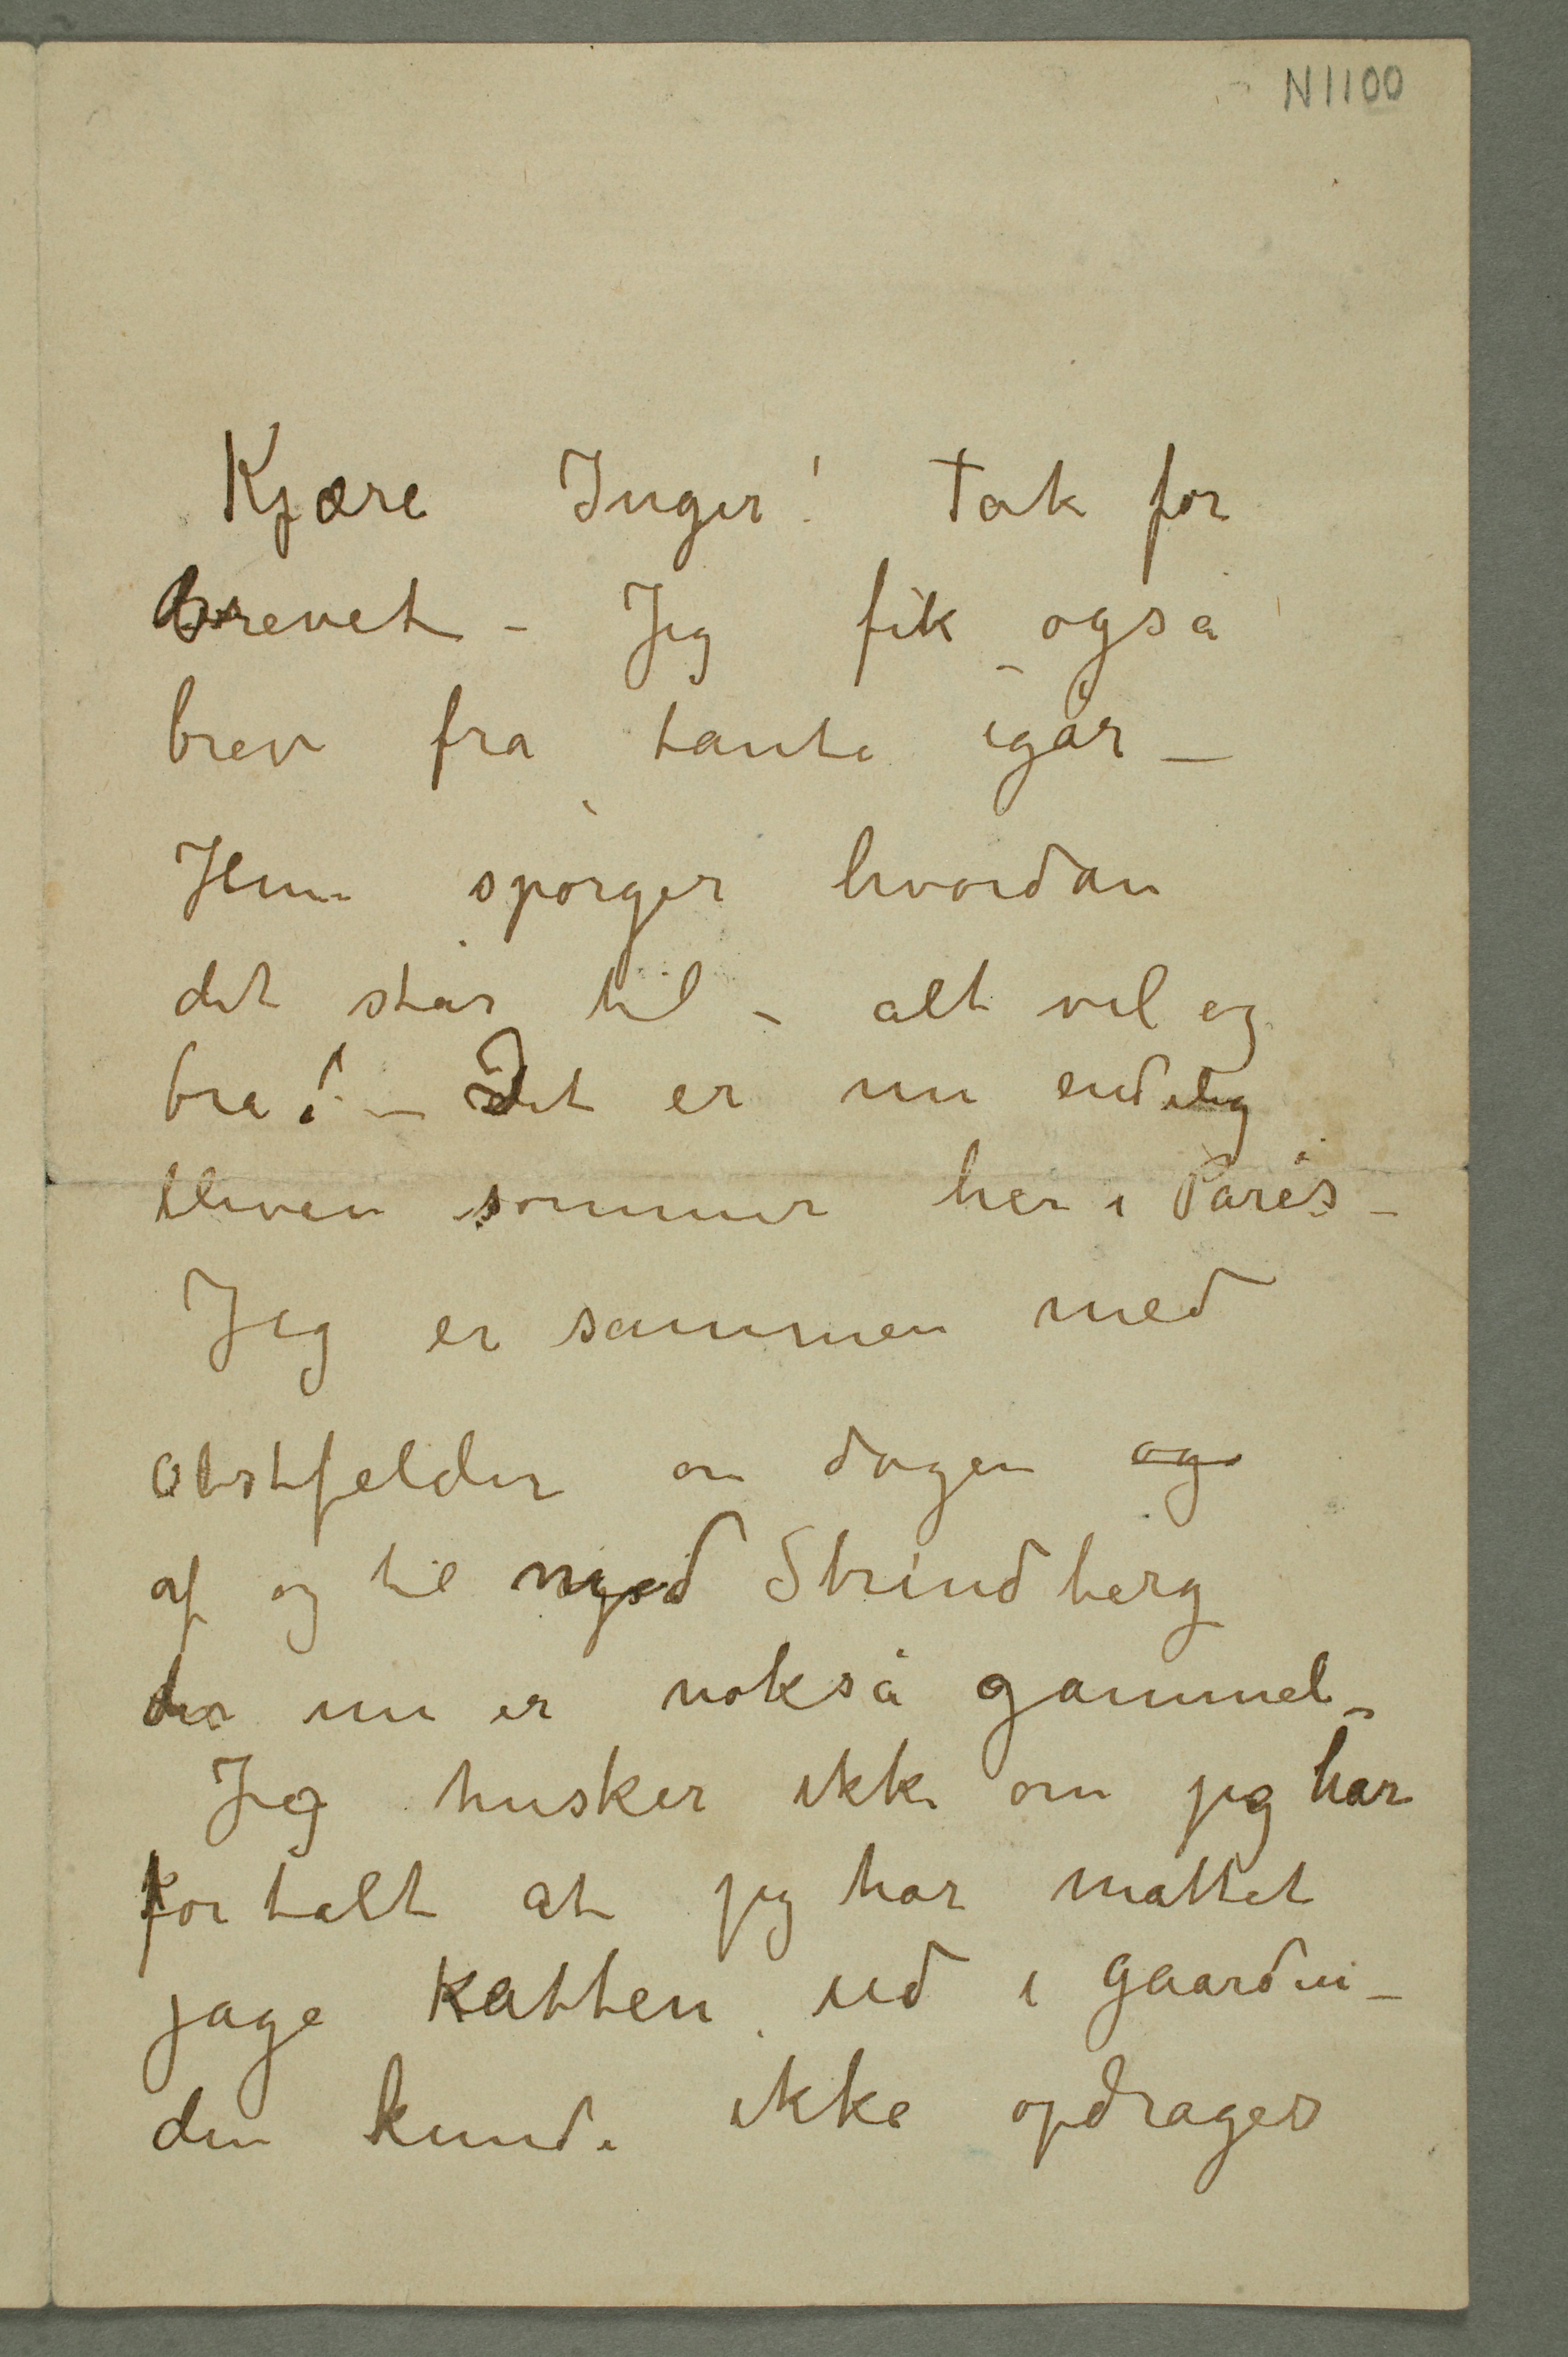 N 1100
Kjære Inger! Tak for
brevet – Jeg fik også
brev fra tante igår –
Hun spørger hvordan
det står til – alt vel og
bra! – Det er nu endelig
bleven sommer her i Paris –
Jeg er sammen med
Obstfelder om dagen og
af og til med Strindberg
der nu er nokså gammel –
Jeg husker ikke om jeg har
fortalt at jeg har måttet
jage katten ud i gaarden –
den kunde ikke opdrages